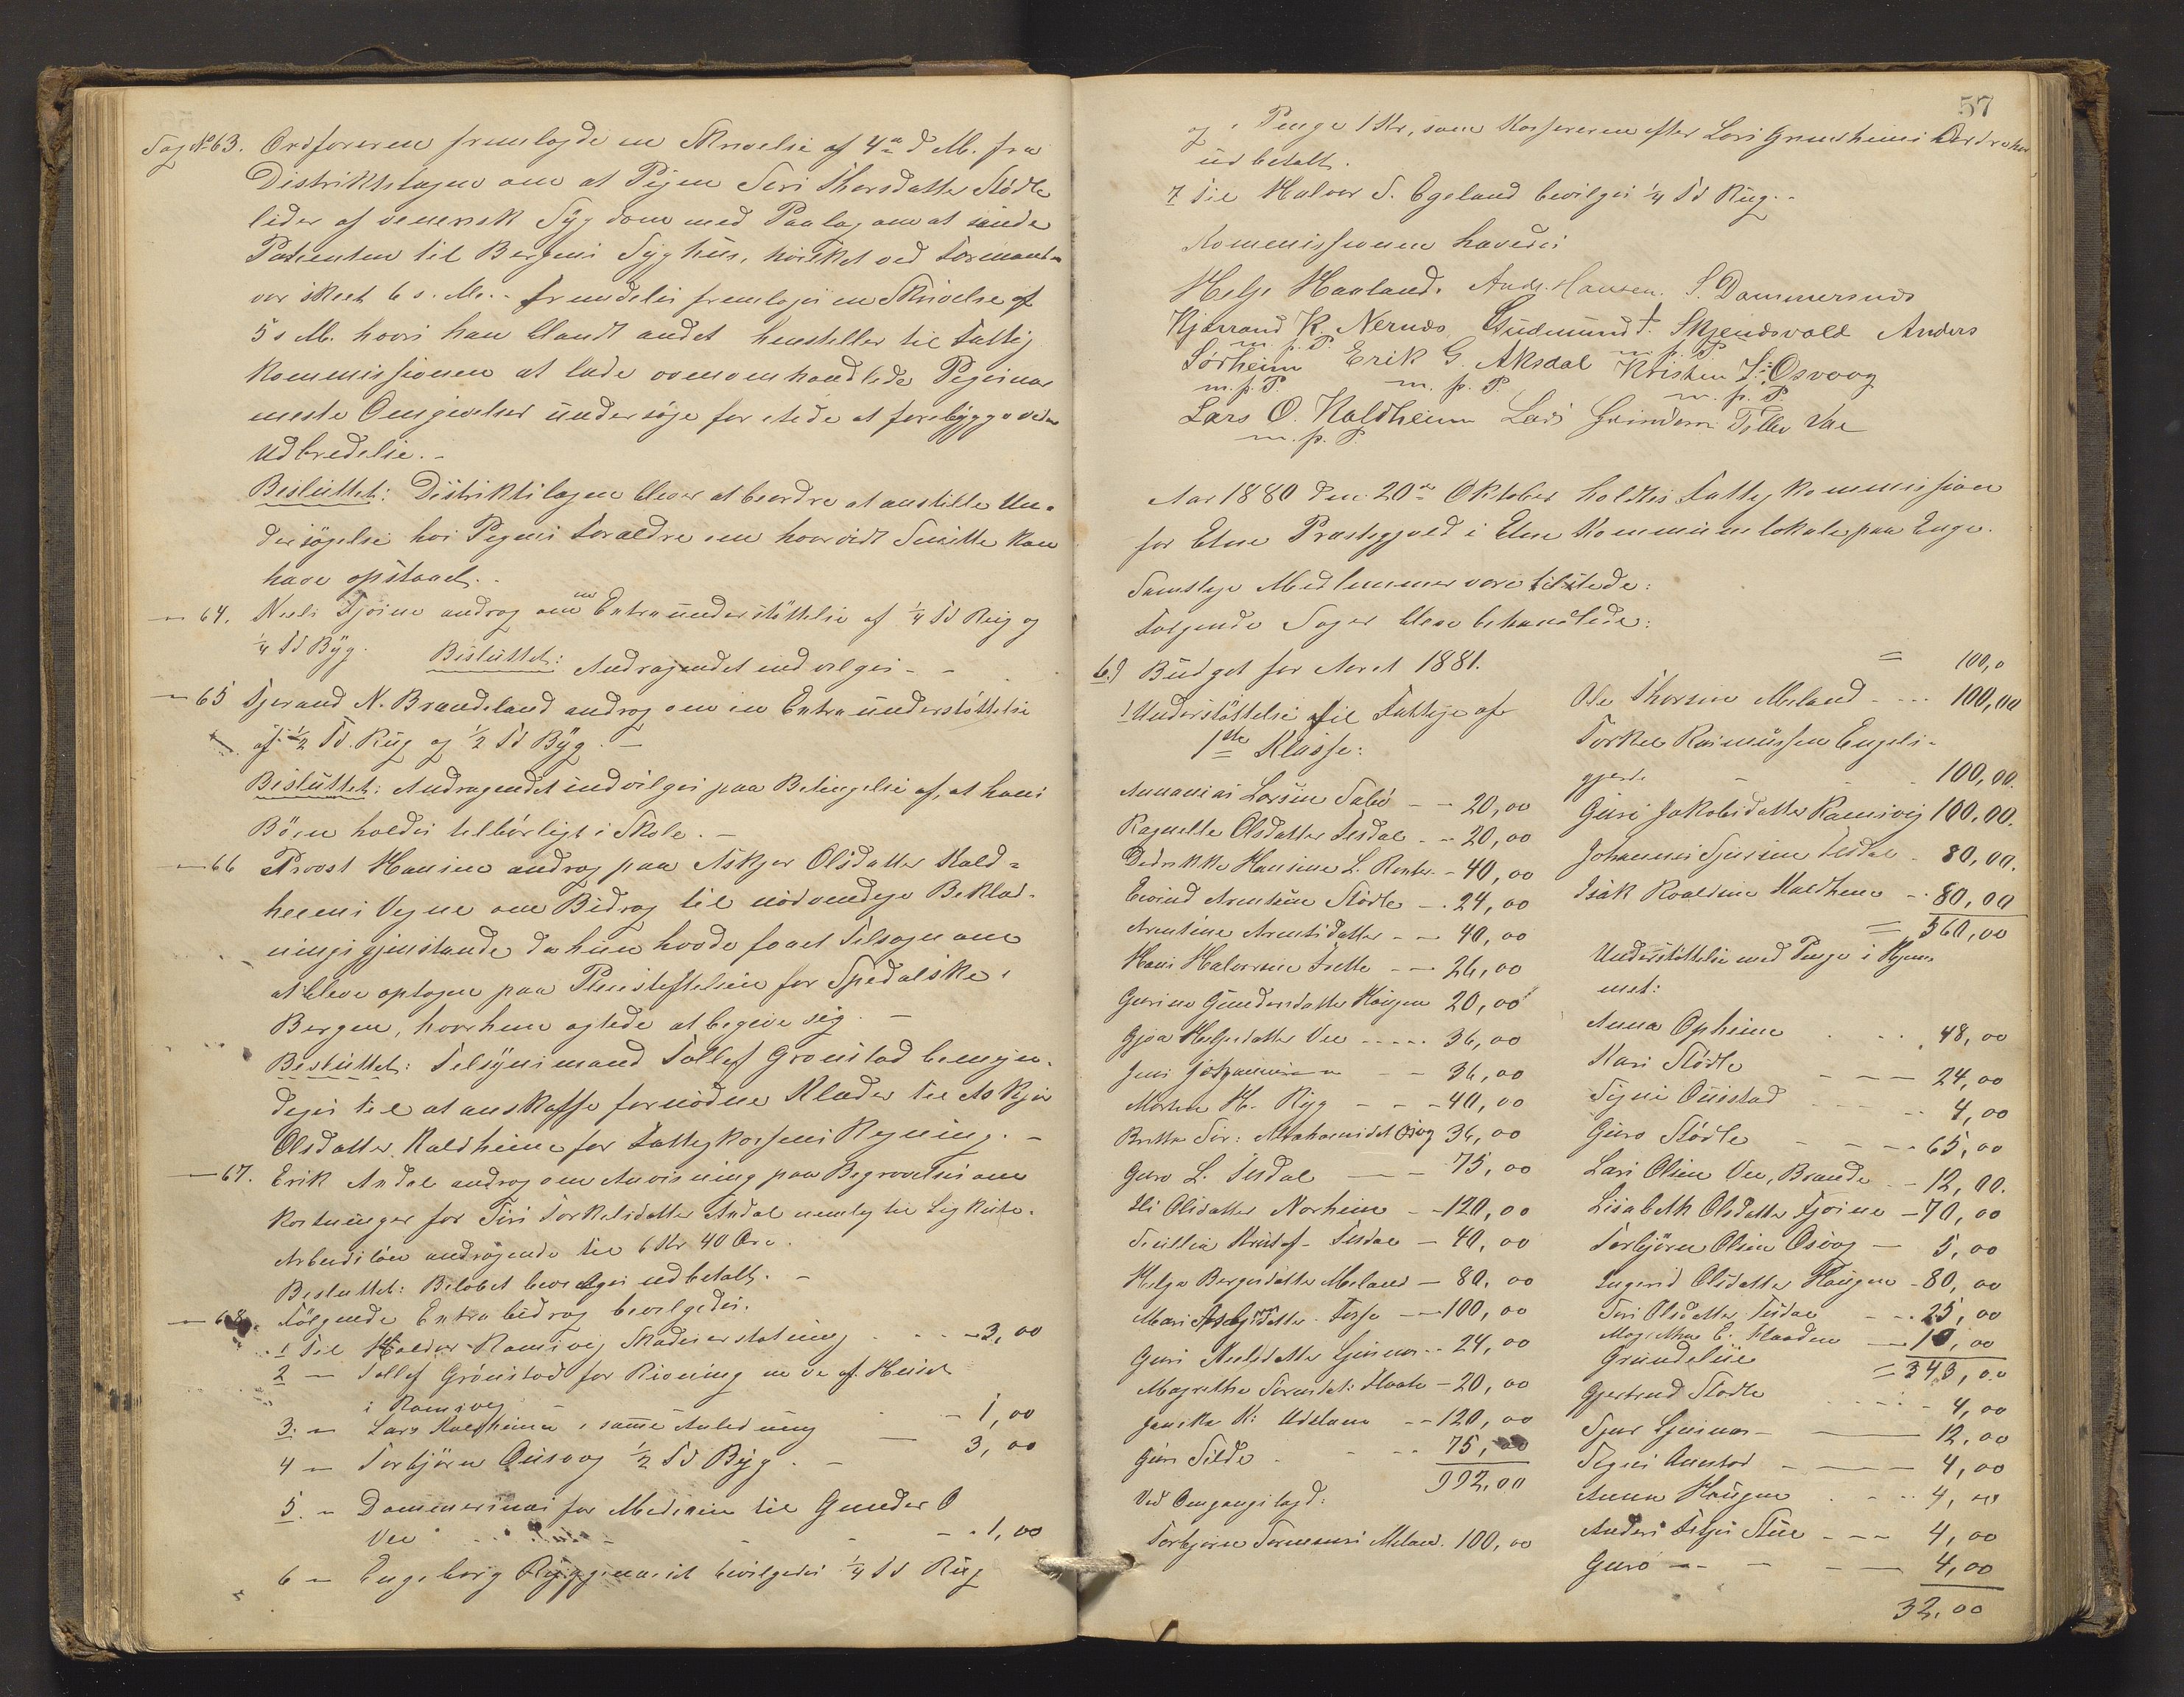 Sag No 63. Ordføreren fremlagde en Skrivelse af 4de d. M. fra
Distriktslægen om at Pigen Siri Thorsdatter Stødle
lider af venerisk Sygdom med Paalag om at sende
Patienten til Bergens Sygehus, hvilket ved Formand
var skeet 6 s. M. - fremdeles fremlagdes en Skrivelse af
5 s M. hvori han blandt andet henstiller til Fattig
kommissionen at lade ovenomhandlede Piges nær
meste Omgivelser undersøge for itide at forebygge videre
Udbredelse. -
Besluttet: Distriktslægen bliver at beordre at anstille Un-
dersøgelse hos Pigens Forældre om hvorvidt Smitte kan
have opstaaet. -
— 64. Niels Fjøsne androg om en Extraunderstøttelse af ¼ Td Rug og
¼ Td Byg. Besluttet: Andragendet indvilges - -
— 65 Sjerand N. Brandeland androg om en Extraunderstøttelse
af ½ Td. Rug og ½ Td Byg. -
Besluttet: Andragendet indvilges paa Betingelse af, at hans
Børn holdes tilbørligt i Skole. -
— 66 Provst Hansen androg paa Askjer Olsdatter Kald-
heims Vegne om Bidrag til nødvendige Beklæd-
ningsgjenstande da hun havde faaet Tilsagn om
at blive optagen paa Pleiestiftelsen for Spedalske i
Bergen, hvorhen agtede at begive sig. -
Besluttet: Tilsynsmand Tollef Grønstad bemyn-
diges til at anskaffe fornødne Klæder til Askjer
Olsdatter Kaldheim for Fattigkassens Regning. -
— 67. Erik Axdal androg om Anvisning paa Begravelsesom
kostninger for Siri Torkelsdatter Axdal nemlig til Ligkiste.
Arbeidsløn andragende til 6 Kr 40 Øre.
Besluttet: Beløbet bevilges udbetalt. -
— 68. Følgende Extrabidrag bevilgedes.
1 Til Haldor Ramsvig Skadeserstatning - - - 3,00
2 — Tollef Grønstad for Rivning m. v. af Huset
i Ramsvig - - 1,00
3. — Lars Kaldheim i samme Anledning — 3,00
4 — Torbjørn Ousvog ½ Td Byg. -
5. — Dommersnes for Medicin til Gunder O
Vee - - - 1,00
6 — Engeborg Rygg bevilgedes ¼ Td Rug
57
og i Penge 1 Kr, som Kassereren efter Lars Grindheims Ordre har
udbetalt.
7 Til Halvor S. Egeland bevilges ¼ Td Rug. -
Kommissionen hævedes
Helje Haaland. Andr. Hansen. S. Dommersnæs
Kjærrand K. Nernæs Gudmund T. Skjendsvold Anders
m. p. P. m. p. P
Sørheim Erik G. Aksdal Kristen J. Osvaag
m. p. P m. p. P. m. p. P.
Lars O. Kaldheim Lars Grindem Tollev Vae
m. p. P.
Aar 1880 den 20de Oktober holdtes Fattigkommission
for Etne Præstegjæld i Etne Kommunelokale paa Enge.
Samtlige Medlemmer vare tilstede:
Følgende Sager bleve behandlede:
69 Budget for Aaret 1881.
1 Understøttelse til Fattige af
1ste Klasse:
Annanias Larsen Sæbø - - 20,00
Ragnelle Olsdatter Tesdal - - 20,00
Dedrikke Hansine L. - 40,00
Eivind Arentsen Stødle - . 24,00
Arentine Arentsdatter - - 40,00
Hans Halvorsen Frette - - 26,00
Gurine Gundersdatter Haugen 20,00
Gjøa Helgesdatter Vee - - - - - 36,00
Jens Johannessen - - 36,00
Morten H. Rygg - - - 40,00
Britha Sør: Abrahamsdt Osvog 36,00
Guro L. Tesdal — 75,00
Ili Olsdatter Norheim - - 120,00
Sicillia Kristof- Tesdal - 40,00
Helga Bergesdatter Meland - 80,00
Mari Asbjørnsdatter Tesse - - 100,00
Guri Nielsdatter Gjersnes - - 24,00
Magrethe - 20,00
Janikke K: Udeland - - 120,00
Guri Silde - - - 75,00
992,00
Ved Omgangslægd:
Torbjørn Sørensens Meland. 100,00
= 100,0
Ole Thorsen Meland - - - 100,00
Torkel Rasmussen Engels-
gjerd. - - 100,00.
Guri Jakobsdatter Ramsvig 100,00.
Johannes Sjursen Tesdal - 80,00.
Isak Roaldsen Kaldheim - - 80,00
= 560,00
Understøttelse med Penge i Hjem-
met:
Anna Opheim - - . . 48,00
Kari Stødle - - - 24,00
Signe Ouestad - - - 4,00
Guro Stødle - - - 65,00
Lars Olsen Vee, Brande - - 12,00.
Lisabeth Olsdatter Fjøsne - 70,00
Torbjørn Olsen Osvog — 5,00
Ingerid Olsdatter Haugen - 80,00
Siri Olsdatter Tesdal - - 25,00
Magrethe E. Flaaden - 10,00
Grundeliie = 343,00
Gjertrud Stødle - - - - 4,00
Sjur Gjersnes - — 12,00
Signe Austad - — 4,00
Anna Haugen . - - 4,00
Anders Stue - - - 4,00
Guro — - - — 4,00
32,00